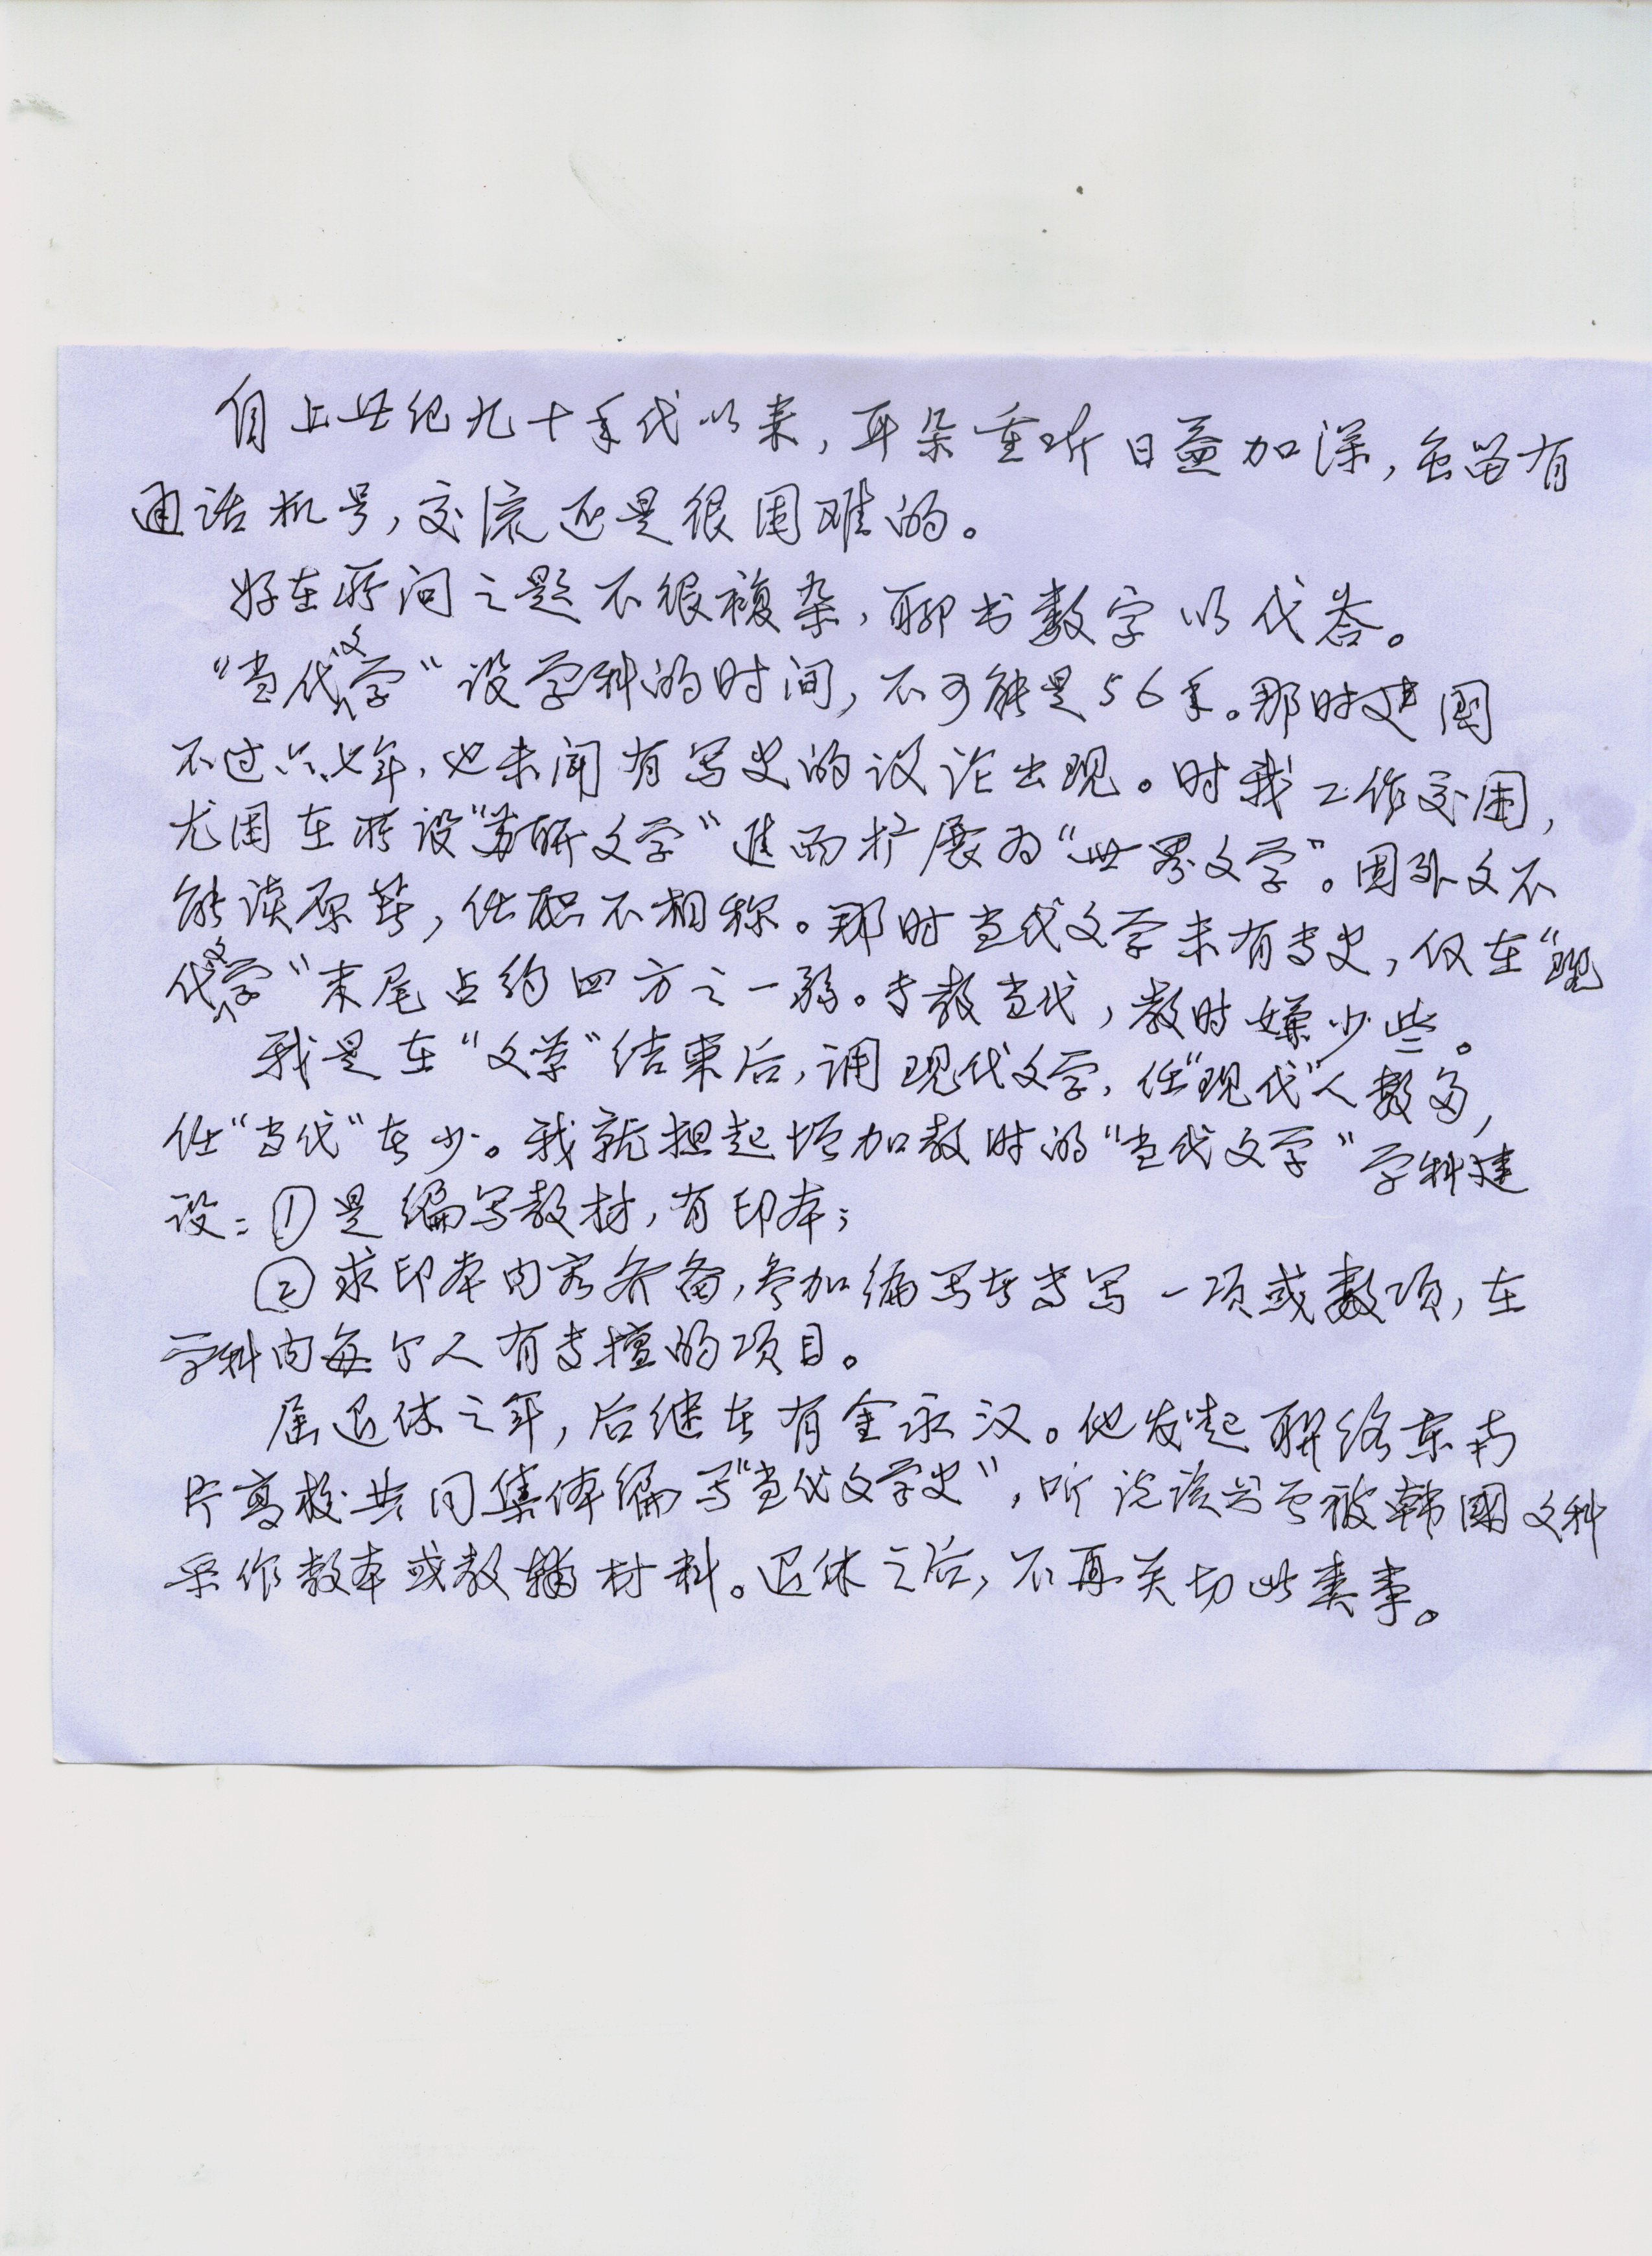 自上世纪九十年代以来，耳朵重听日益加深，虽留有
通话机号，交流还是很困难的。
好在所问之题不很複杂，聊书数字以代答。
“当代文学”设学科的时间，不可能是56年。那时建国
不过六七年，也未闻有写史的议论出现。时我工作交困，
尤困在所设“苏联文学”进而扩展为“世界文学”。因外文不
能读原著，任职不相称。那时当代文学未有专史，仅在“现
代文学”末尾占约四方之一弱。专教当代，教时嫌少些。
我是在“文革”结束后，调现代文学，任“现代”人数多，
任“当代”者少。我就担起增加教时的“当代文学”学科建
设：①是编写教材，有印本；
②求印本内容齐备，参加编写者专写一项或数项，在
学科内每个人有专擅的项目。
届退休之年，后继者有金永汉。他发起联络东南
片高校共同集体编写“当代文学史”，听说该书曾被韩國文科
采作教本或教辅材料。退休之后，不再关切此类事。